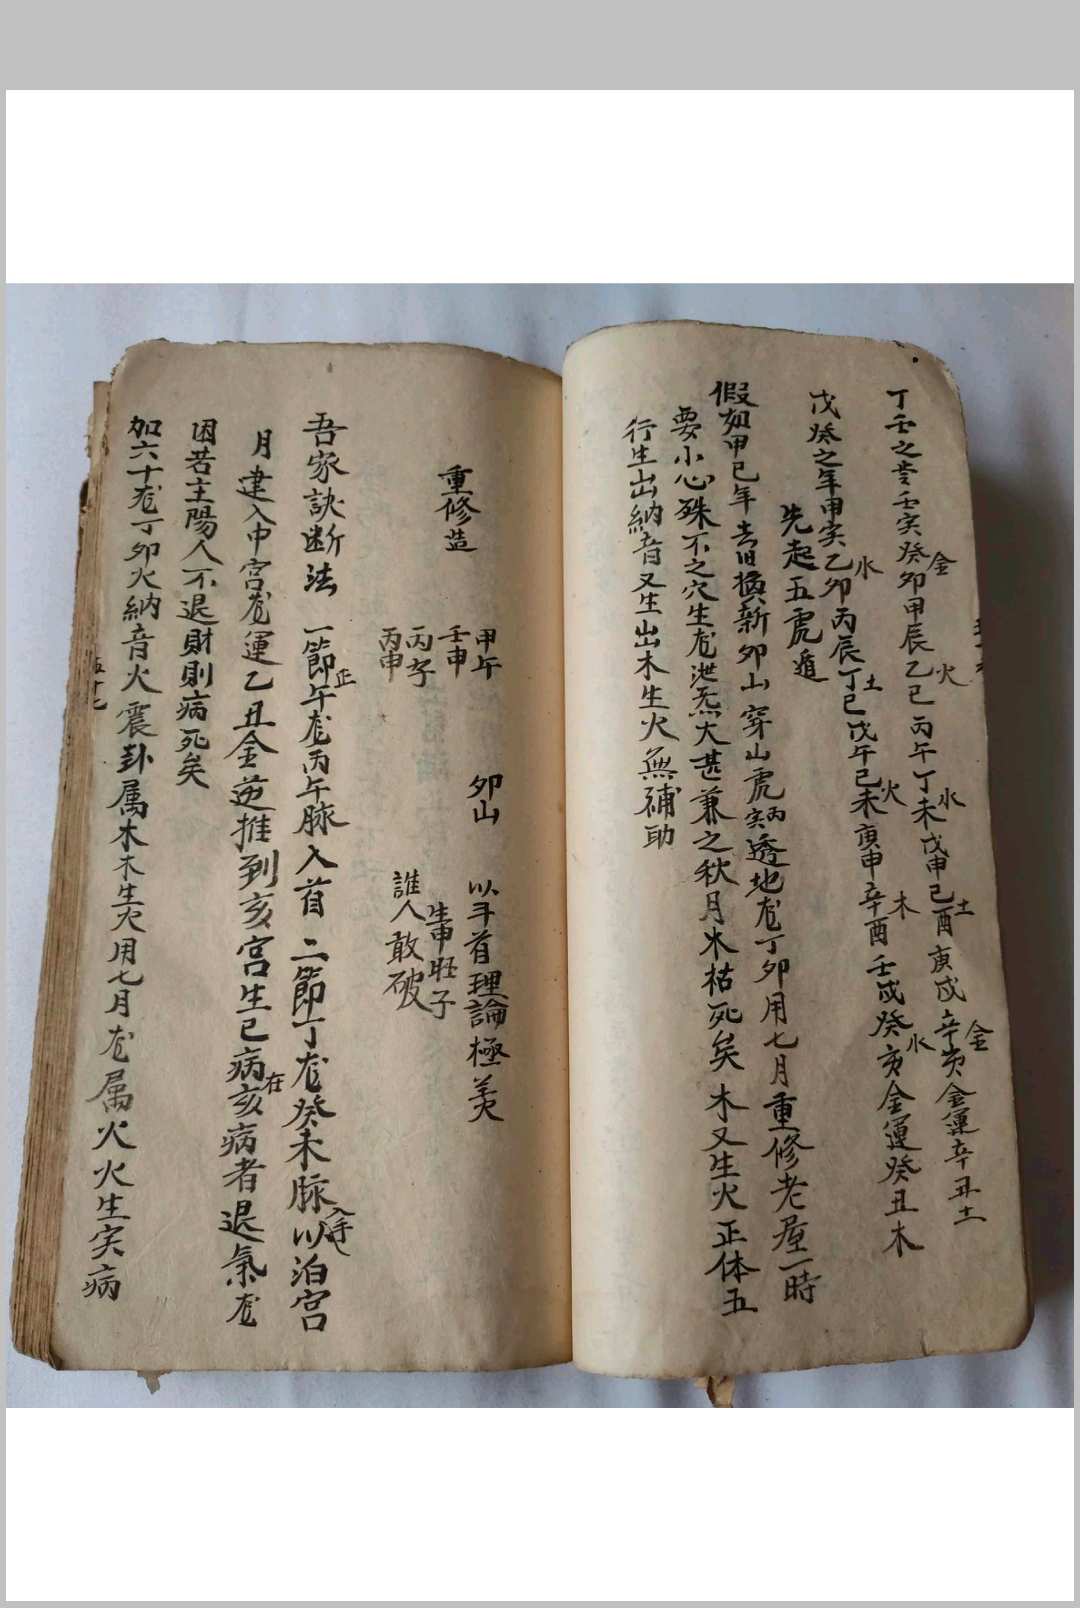 丁壬之岁壬寅癸卯金甲辰乙巳火丙午丁未水戊申己酉土庚戌辛亥金金運辛丑土
戊癸之年甲寅乙卯水丙辰丁巳土戊午己未火庚申辛酉木壬戌癸亥水金運癸丑木
先起五虎遁
假如甲己年去旧換新卯山穿山虎丙寅透地龙丁卯用七月重修老屋一時
要小心殊不之穴生龙泄炁大甚兼之秋月木枯死矣木又生火正体五
行生出納音又生出木生火無補助
重修造
甲午
壬申
丙子
丙申
卯山
以斗首理論極美
生申旺子
誰人敢破
吾家訣断法一節正午龙丙午脉入首二節丁龙癸未脉入手以泊宫
月建入中宫龙運乙丑金逆推到亥宫生巳病在亥病者退氣龙
因若主陽人不退財則病死矣
加六十龙丁卯火納音火震卦属木木生火用七月龙属火火生寅病
五十七